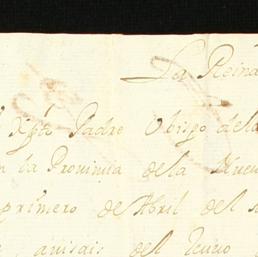 La Reina
Padre Obispo de la
en la Provincia de la Nueu
primero de Abril del
auisais del